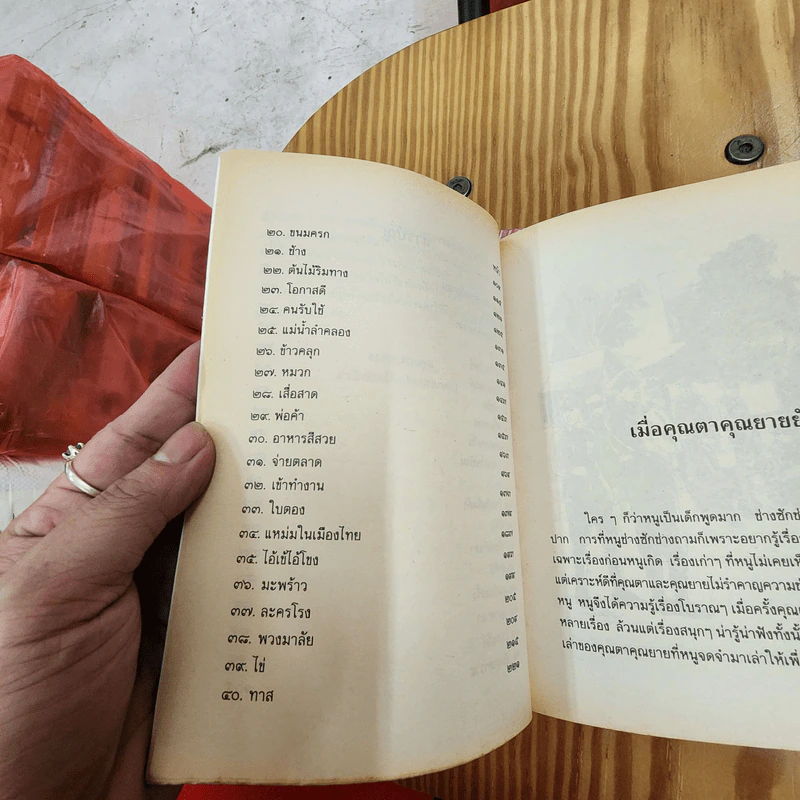 ๒๐. ขนมครก
๒๑. ช้าง
๒๒. ต้นไม้ริมทาง
๒๓. โอกาสดี
๒๔. คนรับใช้
๒๕. แม่น้ำลำคลอง
๒๖. ข้าวคลุก
๒๗. หมวก
๒๘. เสื่อสาด
๒๙. พ่อค้า
๓๐. อาหารสีสวย
๓๑. จ่ายตลาด
๓๒. เข้าทำงาน
๓๓. ใบตอง
๓๔. แหม่มในเมืองไทย
๓๕. ไอ้เข้ไอ้โขง
๓๖. มะพร้าว
๓๗. ละครโรง
๓๘. พวงมาลัย
๓๙. ไข่
๔๐. ทาส
หน้า
๒๐๕
๒๑๕
๒๒๑
เมื่อคุณตาคุณยายยั
ใคร ๆ ก็ว่าหนูเป็นเด็กพูดมาก ช่างซักช่
ปาก การที่หนูช่างซักช่างถามก็เพราะอยากรู้เรื่อ
เฉพาะเรื่องก่อนหนูเกิด เรื่องเก่าๆ ที่หนูไม่เคยเห็
แต่เคราะห์ดีที่คุณตาและคุณยายไม่รำคาญความช่
หนู หนูจึงได้ความรู้เรื่องโบราณๆ เมื่อครั้งคุณ
หลายเรื่อง ล้วนแต่เรื่องสนุกๆ น่ารู้น่าฟังทั้งนั้
เล่าของคุณตาคุณยายที่หนูจดจำมาเล่าให้เพื่